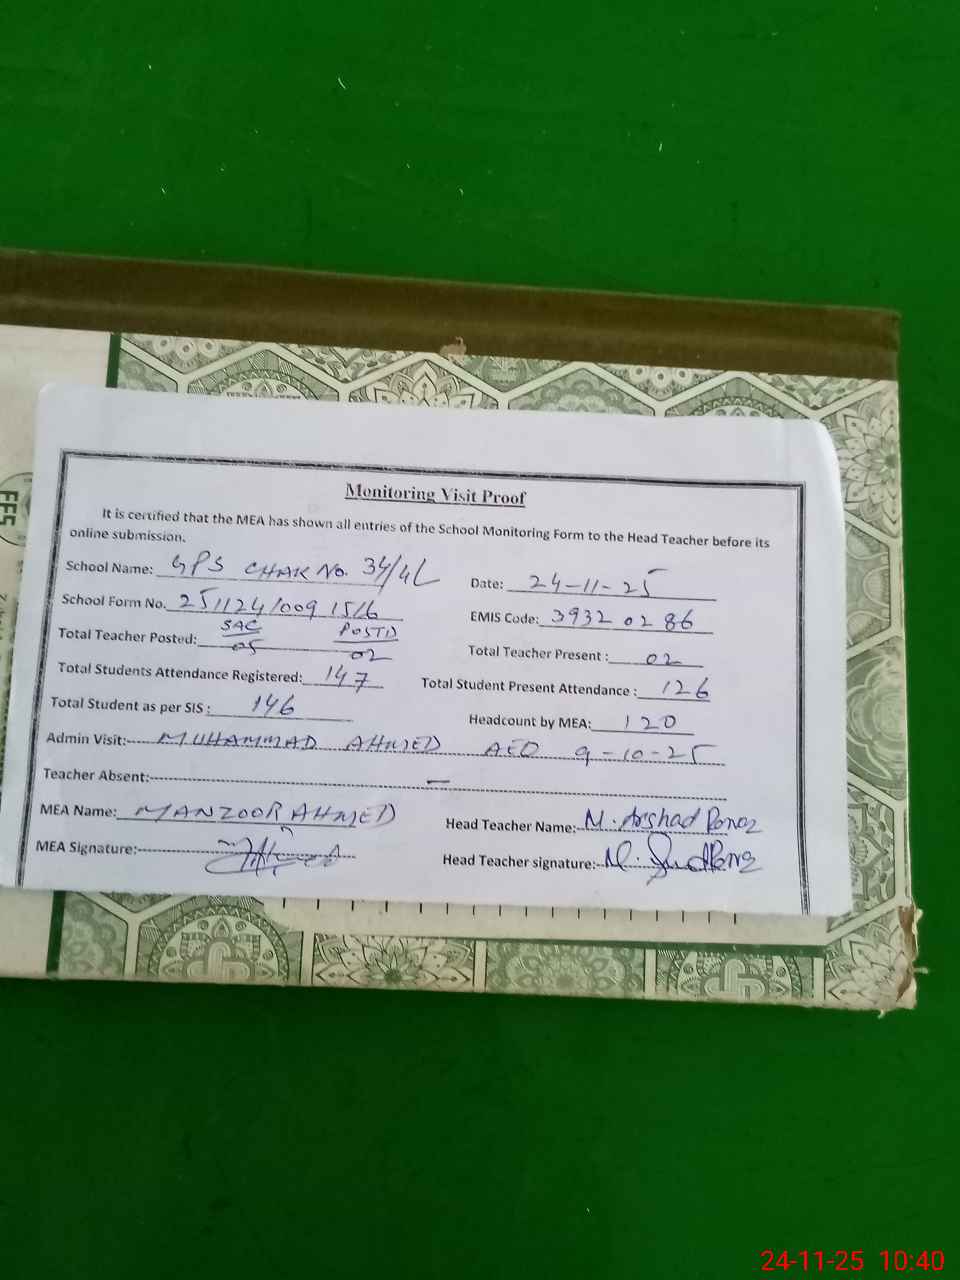 FES
Monitoring Visit Proof
It is certified that the MEA has shown all entries of the School Monitoring Form to the Head Teacher before its
online submission.
School Name: GPS CHAK No. 34/4L Date: 24-11-25
School Form No. EMIS Code: 3932 02 86
SAC POSTD
Total Teacher Posted: 05 02 Total Teacher Present : 02
Total Students Attendance Registered: 147 Total Student Present Attendance : 126
Total Student as per SIS : 146 Headcount by MEA: 120
Admin Visit: MUHAMMAD AHMED AEO 9-10-25
Teacher Absent: —
MEA Name: MANZOOR AHMED Head Teacher Name: M. Arshad
MEA Signature: Head Teacher signature:
24-11-25 10:40